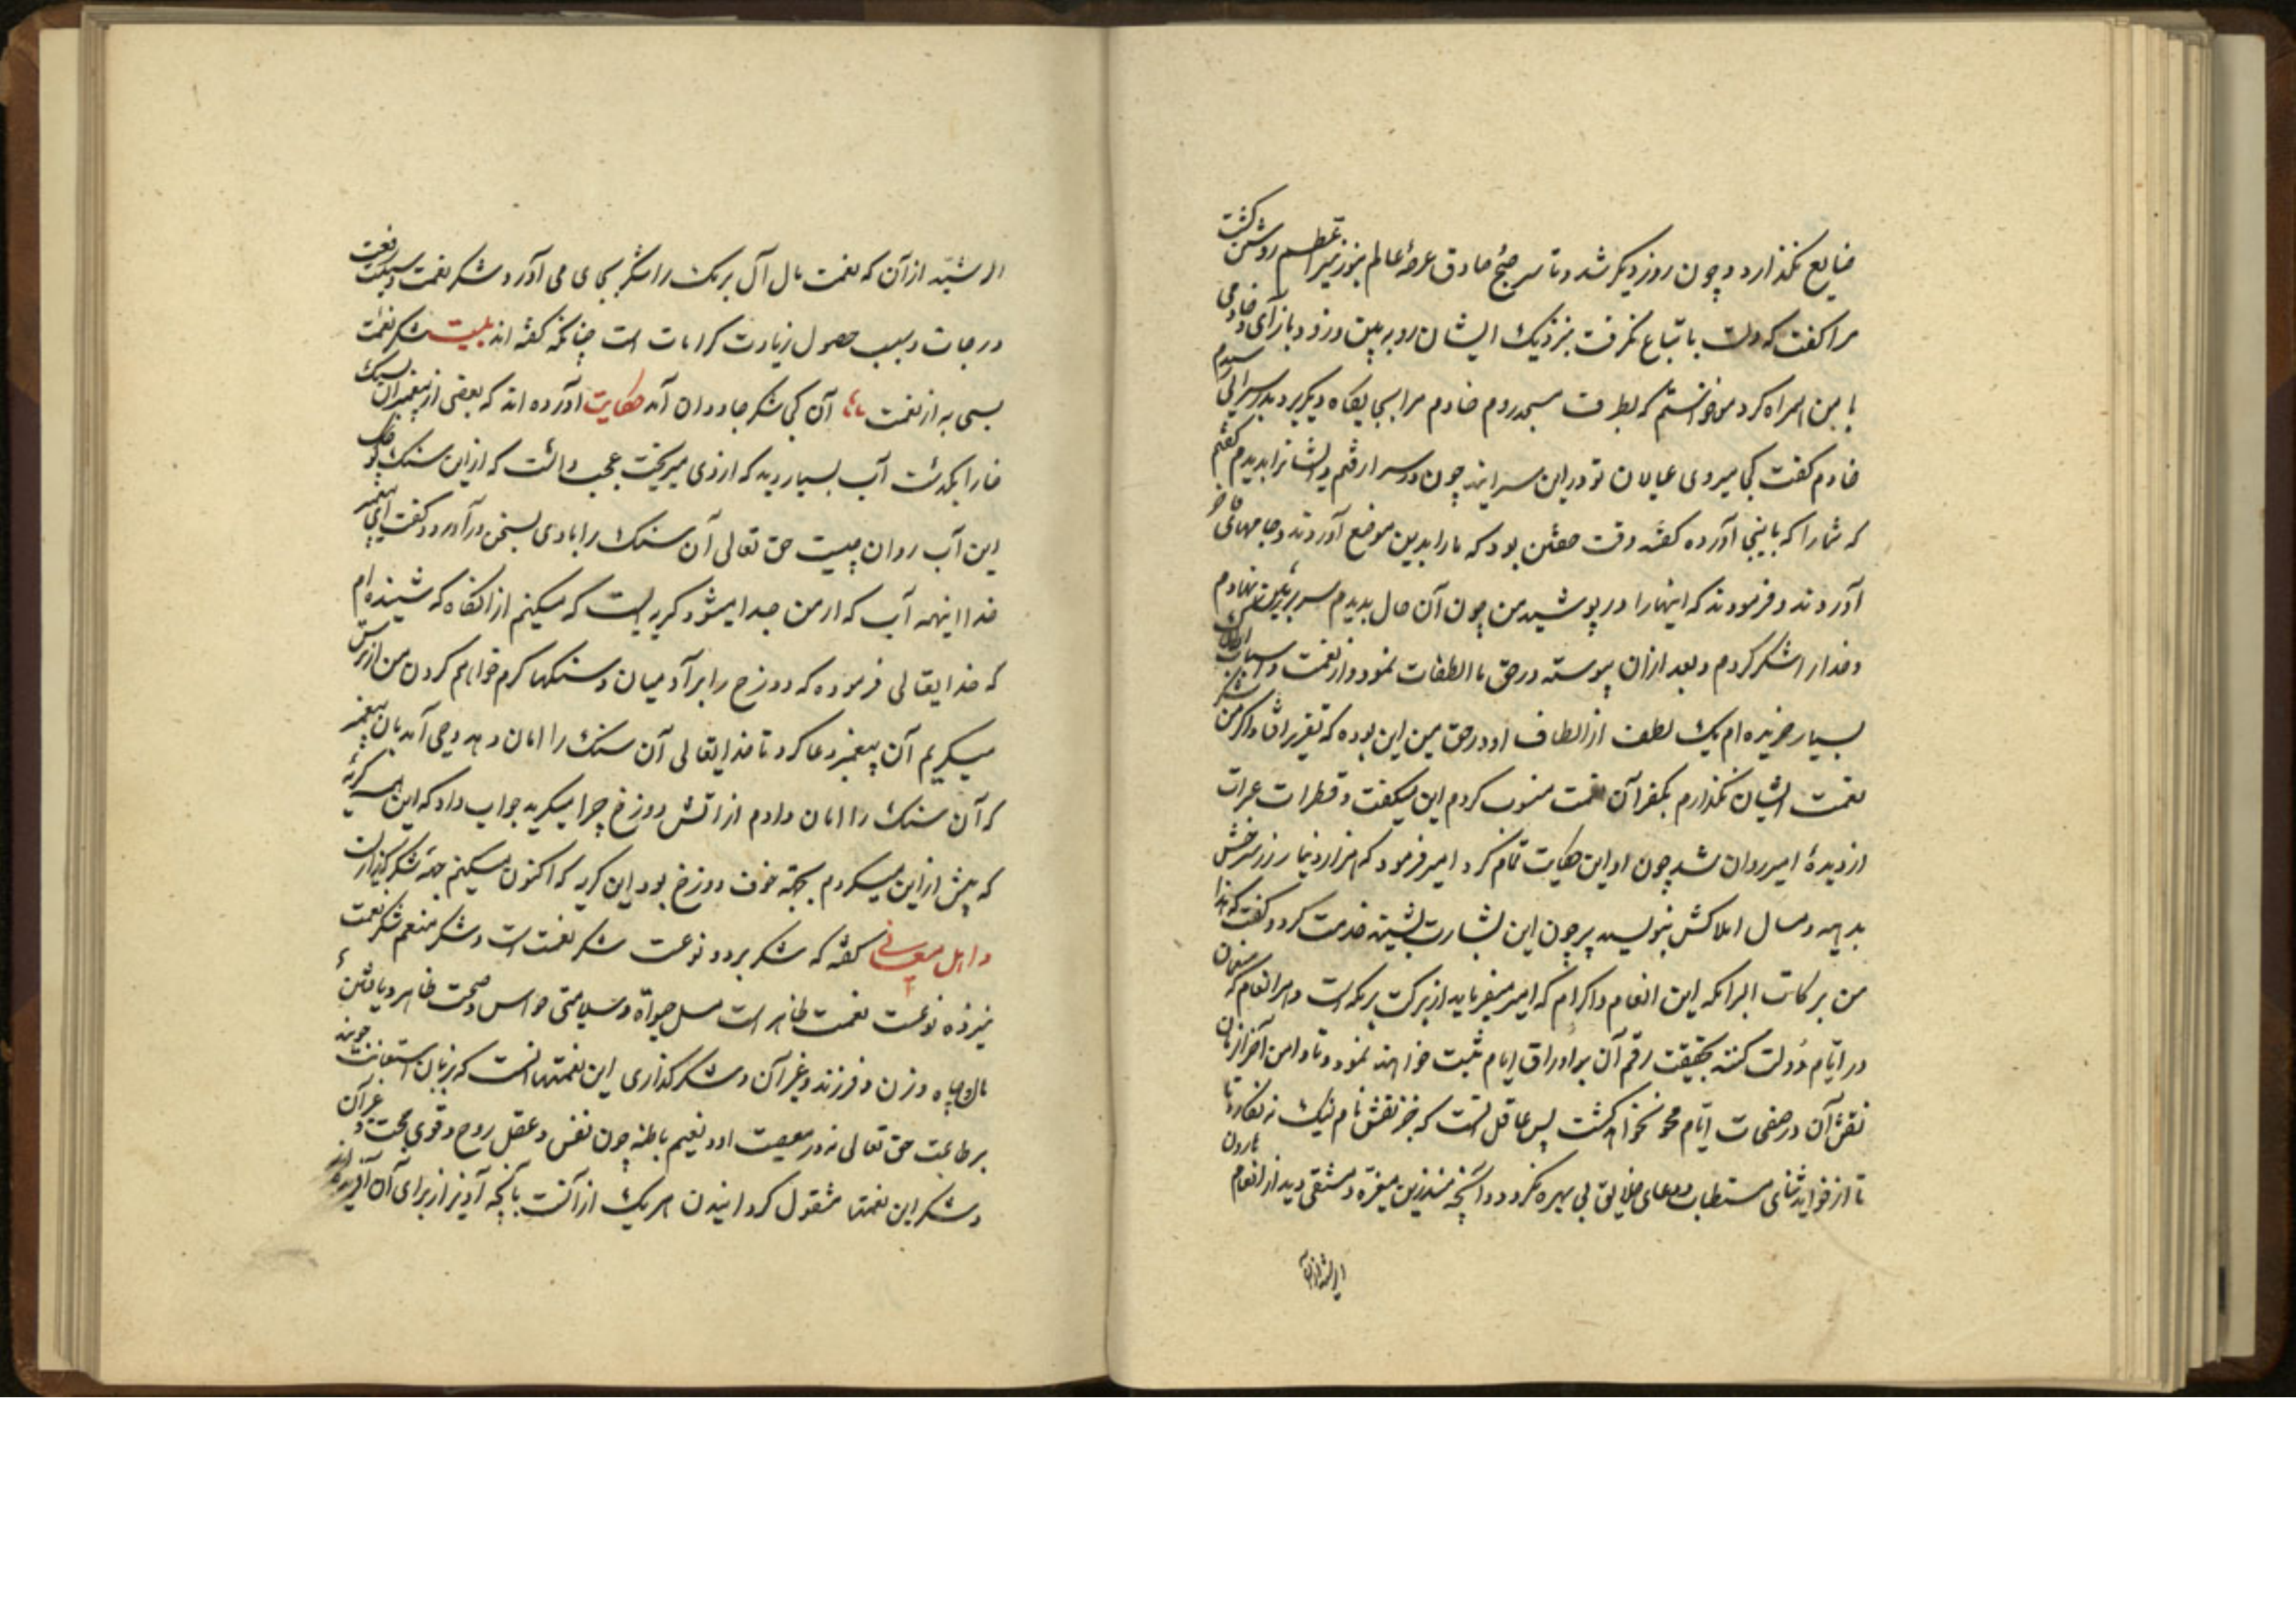 ضایع نکذارد و چون روز دیکر شد و تا سر صبح صادق عرصهٔ عالم بنور نیر اعظم روشن کشت
مرا کفت که دلت باتباع نکرفت بنزدیک ایشان رو به بین و زود باز آی و خادمی
با من همراه کرد من خواستم که بطرف مسجد روم خادم مرا بجایکاه دیکر برد بدر سرایی رسیدم
خادم کفت کجا میروی عیالان تو در این سرایند چون در سرا رفتم و ایشانرا بدیدم کفتم
که شما را که باینجا آورده کفتند وقت خفتن بود که ما را بدین موضع آوردند و جامهای
آوردند و فرمودند که اینها را در پوشید من چون آن حال بدیدم سر بر زمین نهادم
و خدا را شکر کردم و بعد از ان پیوسته در حق ما الطفات نمود و از نعمت و اسباب
بسیار خریده ام یک لطف از الطاف او در حق من این بوده که تقریر افتاد اکر من شکر
نعمت ایشان نکذارم بکفران نعمت منسوب کردم این میکفت و قطرات عبرات
از دیدهٔ امیر روان شد چون او این حکایت تمام کرد امیر فرمود که هزار دینار زر سرخش
بدهید و مسال املاکش بنویسید پیر چون این بشارت بشنید خدمت کرد و کفت که هذا
من برکات البرامکه این انعام و اکرام که امیر میفرماید از برکت برمکه است و هر انعام که منعمان
در ایام دولت کنند بحقیقت رقم آن بر اوراق ایام ثبت خواهند نمود و تا دامن آخر الزمان
نقش آن در صفحات ایام محو نخواهد کشت پس عاقل آنست که جز نقش نام نیک نه نکارد تا
تا از فواید ثنای مستطاب و دعای خلایق بی بهره نکردد و آنچه منذر بن مغیره دمشقی دید از انعام هارون
الرشید از آن
الرشید از آن که نعمت مال آل برمک را شکر بجای می آورد و شکر نعمت وسیلت رفعت
درجات و سبب حصول زیادت کرامات است چنانکه کفته اند بلیت شکر نعمت
بسی به از نعمت مانا آن کی شکر جاودان آمد حکایت آورده اند که بعضی از پیغمبران بسنک
خارا بکذشت آب بسیار دید که از وی میریخت عجب داشت که از این سنک
این آب روان چیست حق تعالی آن سنک را با وی بسخن در آورد و کفت ای پیغمبر
خدا اینهمه آب که از من جدا میشود کریه ایست که میکنم از انکاه که شنیده ام
که خدایتعالی فرموده که دوزخ را بر آدمیان و سنکها کرم خواهم کردن من از ترس
میکریم آن پیغمبر دعا کرد تا خدایتعالی آن سنک را امان دهد وحی آمد بان پیغمبر
که آن سنک را امان دادم از آتش دوزخ چرا میکرید جواب داد که این همه کریه
که پیش از این میکردم بجهة خوف دوزخ بود این کریه که اکنون میکنم جهة شکر کذاریست
و اهل معانی کفته که شکر بر دو نوعست شکر نعمت است و شکر منعم شکر نعمت
نیز دو نوعست نعمت ظاهر است مسل حیواة و سلامتی حواس و صحت ظاهر و یافتن
مال و جاه و زن و فرزند و غیر آن و شکر کذاری این نعمتها آنست که بزبان استعانت جویند
بر طاعت حق تعالی نه در معصیت او و نعیم باطنه چون نفس و عقل روح و قوی محبت و غیر آن
و شکر این نعمتها مشغول کردانیدن هر یک از آنست بآنچه آدنیز از برای آن آفریده اند